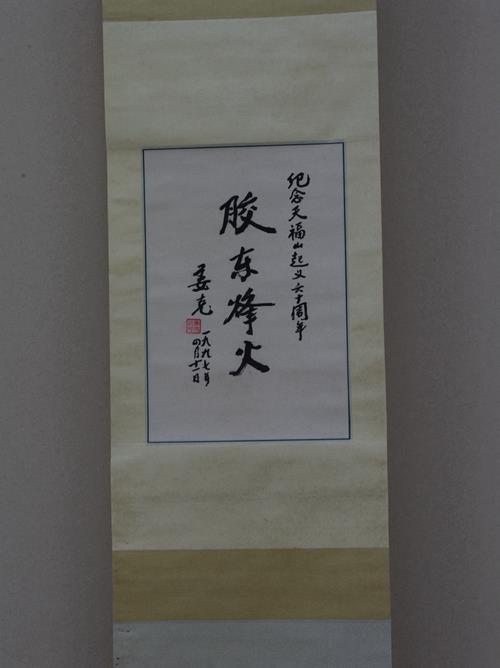 纪念天福山起义六十周年
胶东烽火
姜克
一九九七年
四月十二日